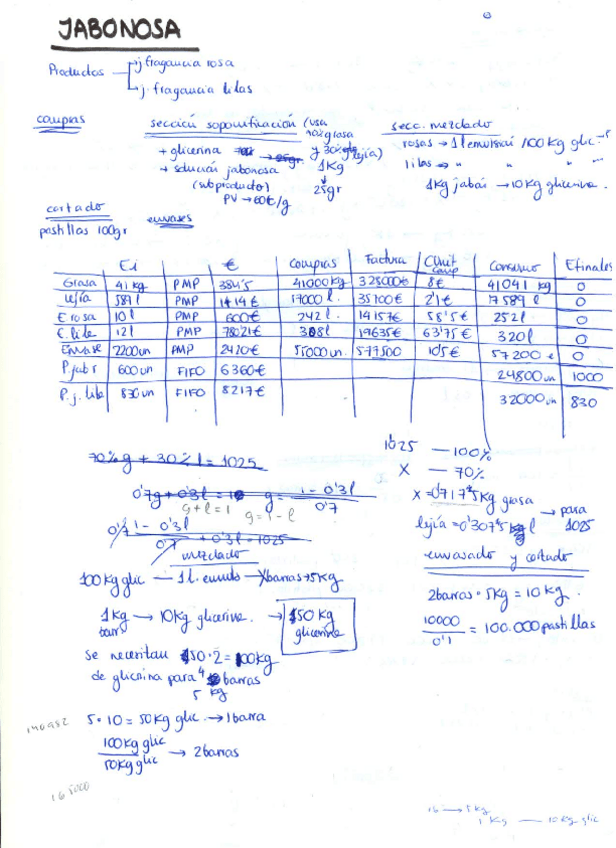 JABONOSA
Productos
j fragancia rosa
j. fragancia lilas
compras
sección saponificación (usa
70% grasa
y 30% lejía)
+ glicerina
+ solución jabonosa
(subproducto)
PV → 60€/g
1Kg
25gr
secc. mezclado
rosas → 1 l emulsión /100 Kg glic
lilas → " " "
1Kg jabón → 10Kg glicerina.
cortado
pastillas 100gr
envases
Ei € Compras Factura CUnit comp Consumo Efinales
Grasa 41 kg PMP 384'5 41000kg 328000€ 8€ 41041 kg 0
Lejía 589 l PMP 1414€ 17000 l. 35700€ 2'1€ 17589 l 0
E rosa 10 l PMP 600€ 242 l. 14157€ 58'5€ 252 l 0
E. lila 12 l PMP 780'21€ 308 l 19635€ 63'75€ 320 l 0
Envase 2200un PMP 2420€ 55000un. 577500 10'5€ 57200 0
P.jab r 600un FIFO 6360€ 24800un 1000
P.j. lila 830un FIFO 8217€ 32000un 830
70% g + 30% l = 1025
0'7g + 0'3l = 1 g = 1 - 0'3l / 0'7
g + l = 1 g = 1 - l
0'7 1 - 0'3l / 0'7 + 0'3l = 1025
1025 — 100%
X — 70%
X = 0'717'5Kg grasa
lejía = 0'307'5 l → para 1025
mezclado
100Kg glic — 1 l. emuls → X barras → 5Kg
1Kg barr → 10Kg glicerina. → 50 kg glicerina
se necesitan 50·2 = 100kg
de glicerina para barras
5 kg
5·10 = 50Kg glic. → 1 barra
100Kg glic / 50Kg glic → 2 barras
envasado y cortado
2 barras · 5Kg = 10 kg.
10000 / 0'1 = 100.000 pastillas
1b → 5 kg
1 Kg — 10 Kg glic